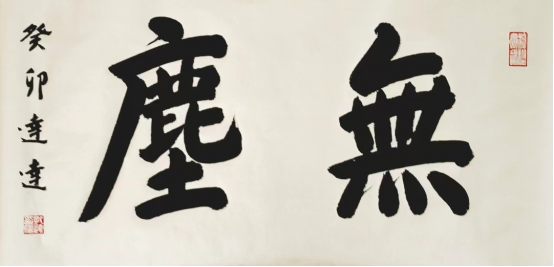 無塵
癸卯達達